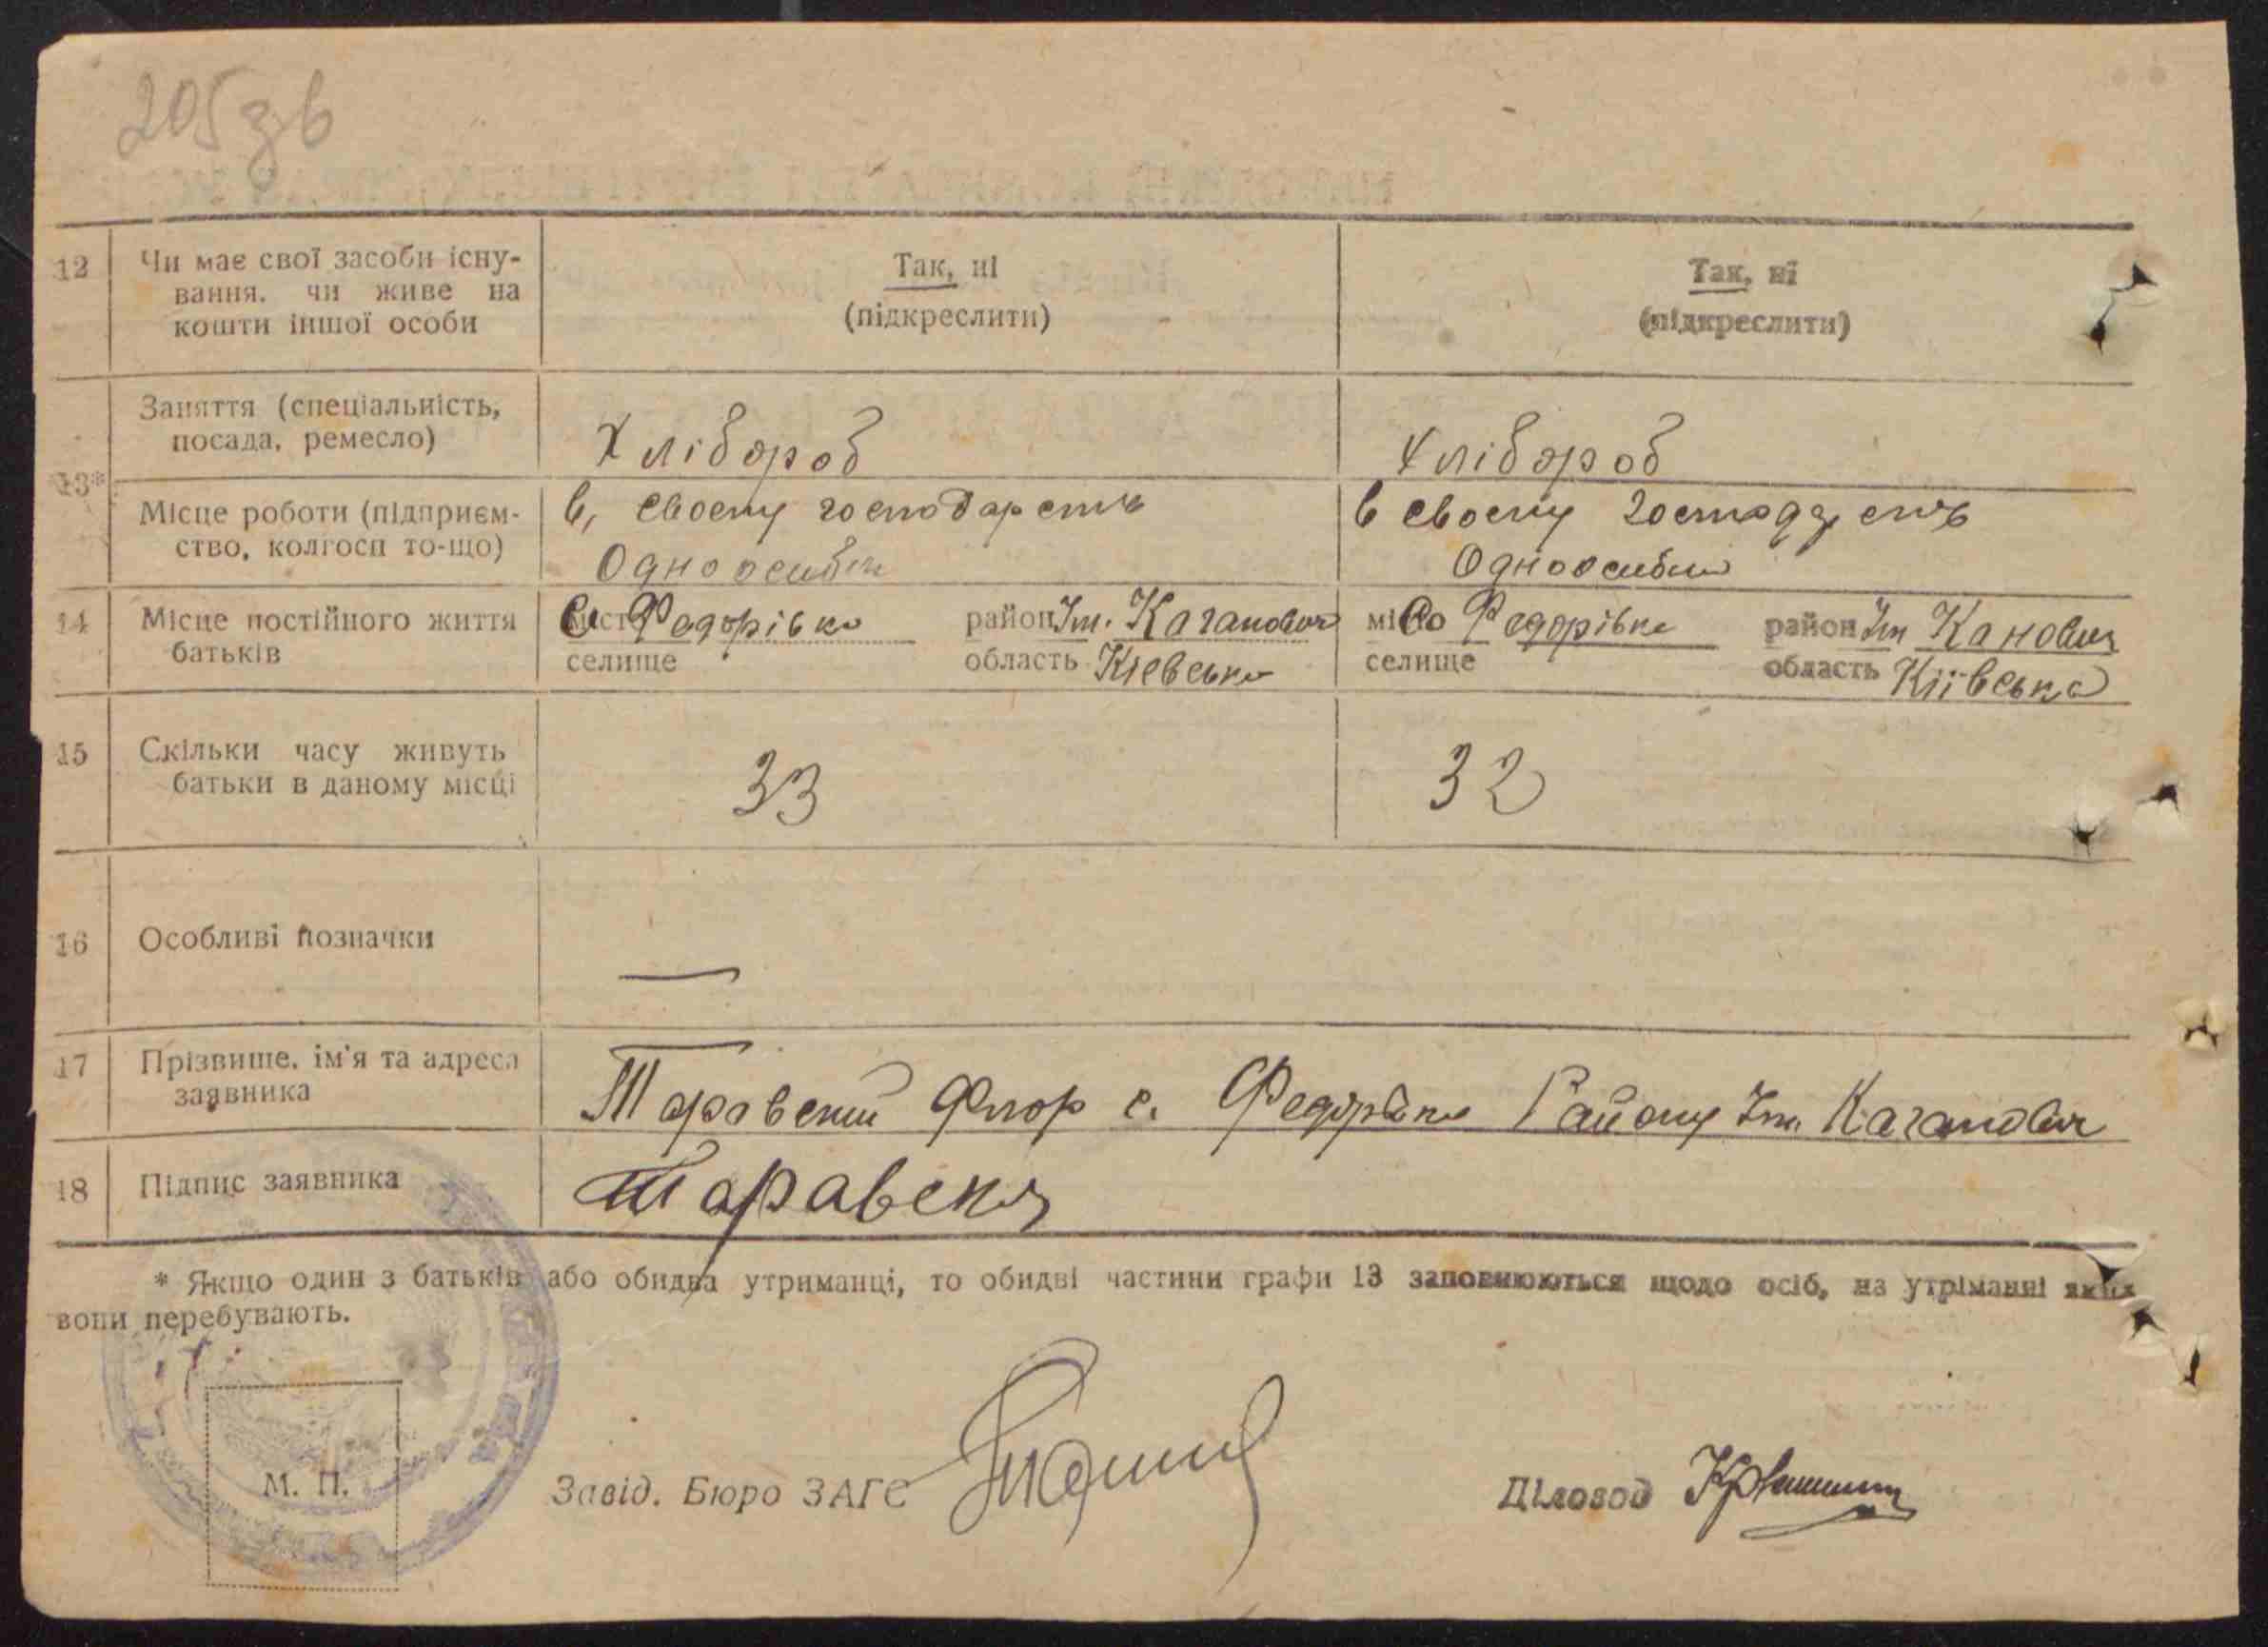 205зв
12 Чи має свої засоби існу- Так, ні Так, ні
вання, чи живе на (підкреслити) (підкреслити)
кошти іншої особи
13* Заняття (спеціальність,
посада, ремесло) Хлібороб Хлібороб
Місце роботи (підприєм- в, своему господарств в своему господарств
ство, колгосп то-що) Одноосібн Одноосібн
14 Місце постійного життя місто Федорівка район Ім. Каганович місто Федорівка район Ім Канович
батьків селище область Кіевська селище область Кіївська
15 Скільки часу живуть
батьки в даному місці 33 32
16 Особливі позначки —
17 Прізвище, ім'я та адреса
заявника Таравский Флор с. Федорівка Району Ім. Каганович
18 Підпис заявника Таравский
* Якщо один з батьків або обидва утриманці, то обидві частини графи 13 заповнюються щодо осіб, на утріманні яких
вони перебувають.
М. П. Завід. Бюро ЗАГС Діловод